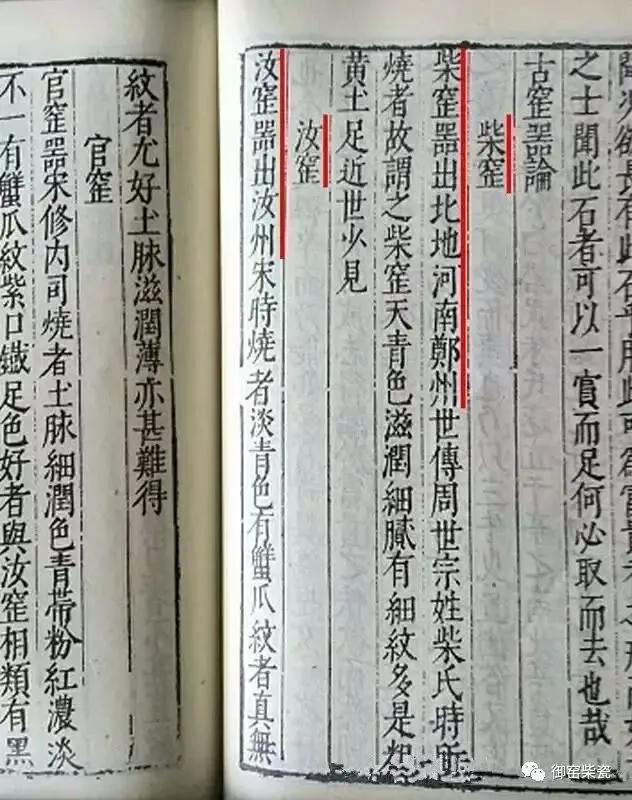 之士聞此石者可以一賞而足何必取而去也哉
古窑器論
柴窑
柴窑器出北地河南鄭州世傳周世宗姓柴氏時所
燒者故謂之柴窑天青色滋潤細膩有細紋多是粗
黄土足近世少見
汝窑
汝窑器出汝州宋時燒者淡青色有蟹爪紋者真無
紋者尤好土脉滋潤薄亦甚難得
官窑
官窑器宋修内司燒者土脉細潤色青帶粉紅濃淡
不一有蟹爪紋紫口鐵足色好者與汝窑相類有黑
御窑柴瓷